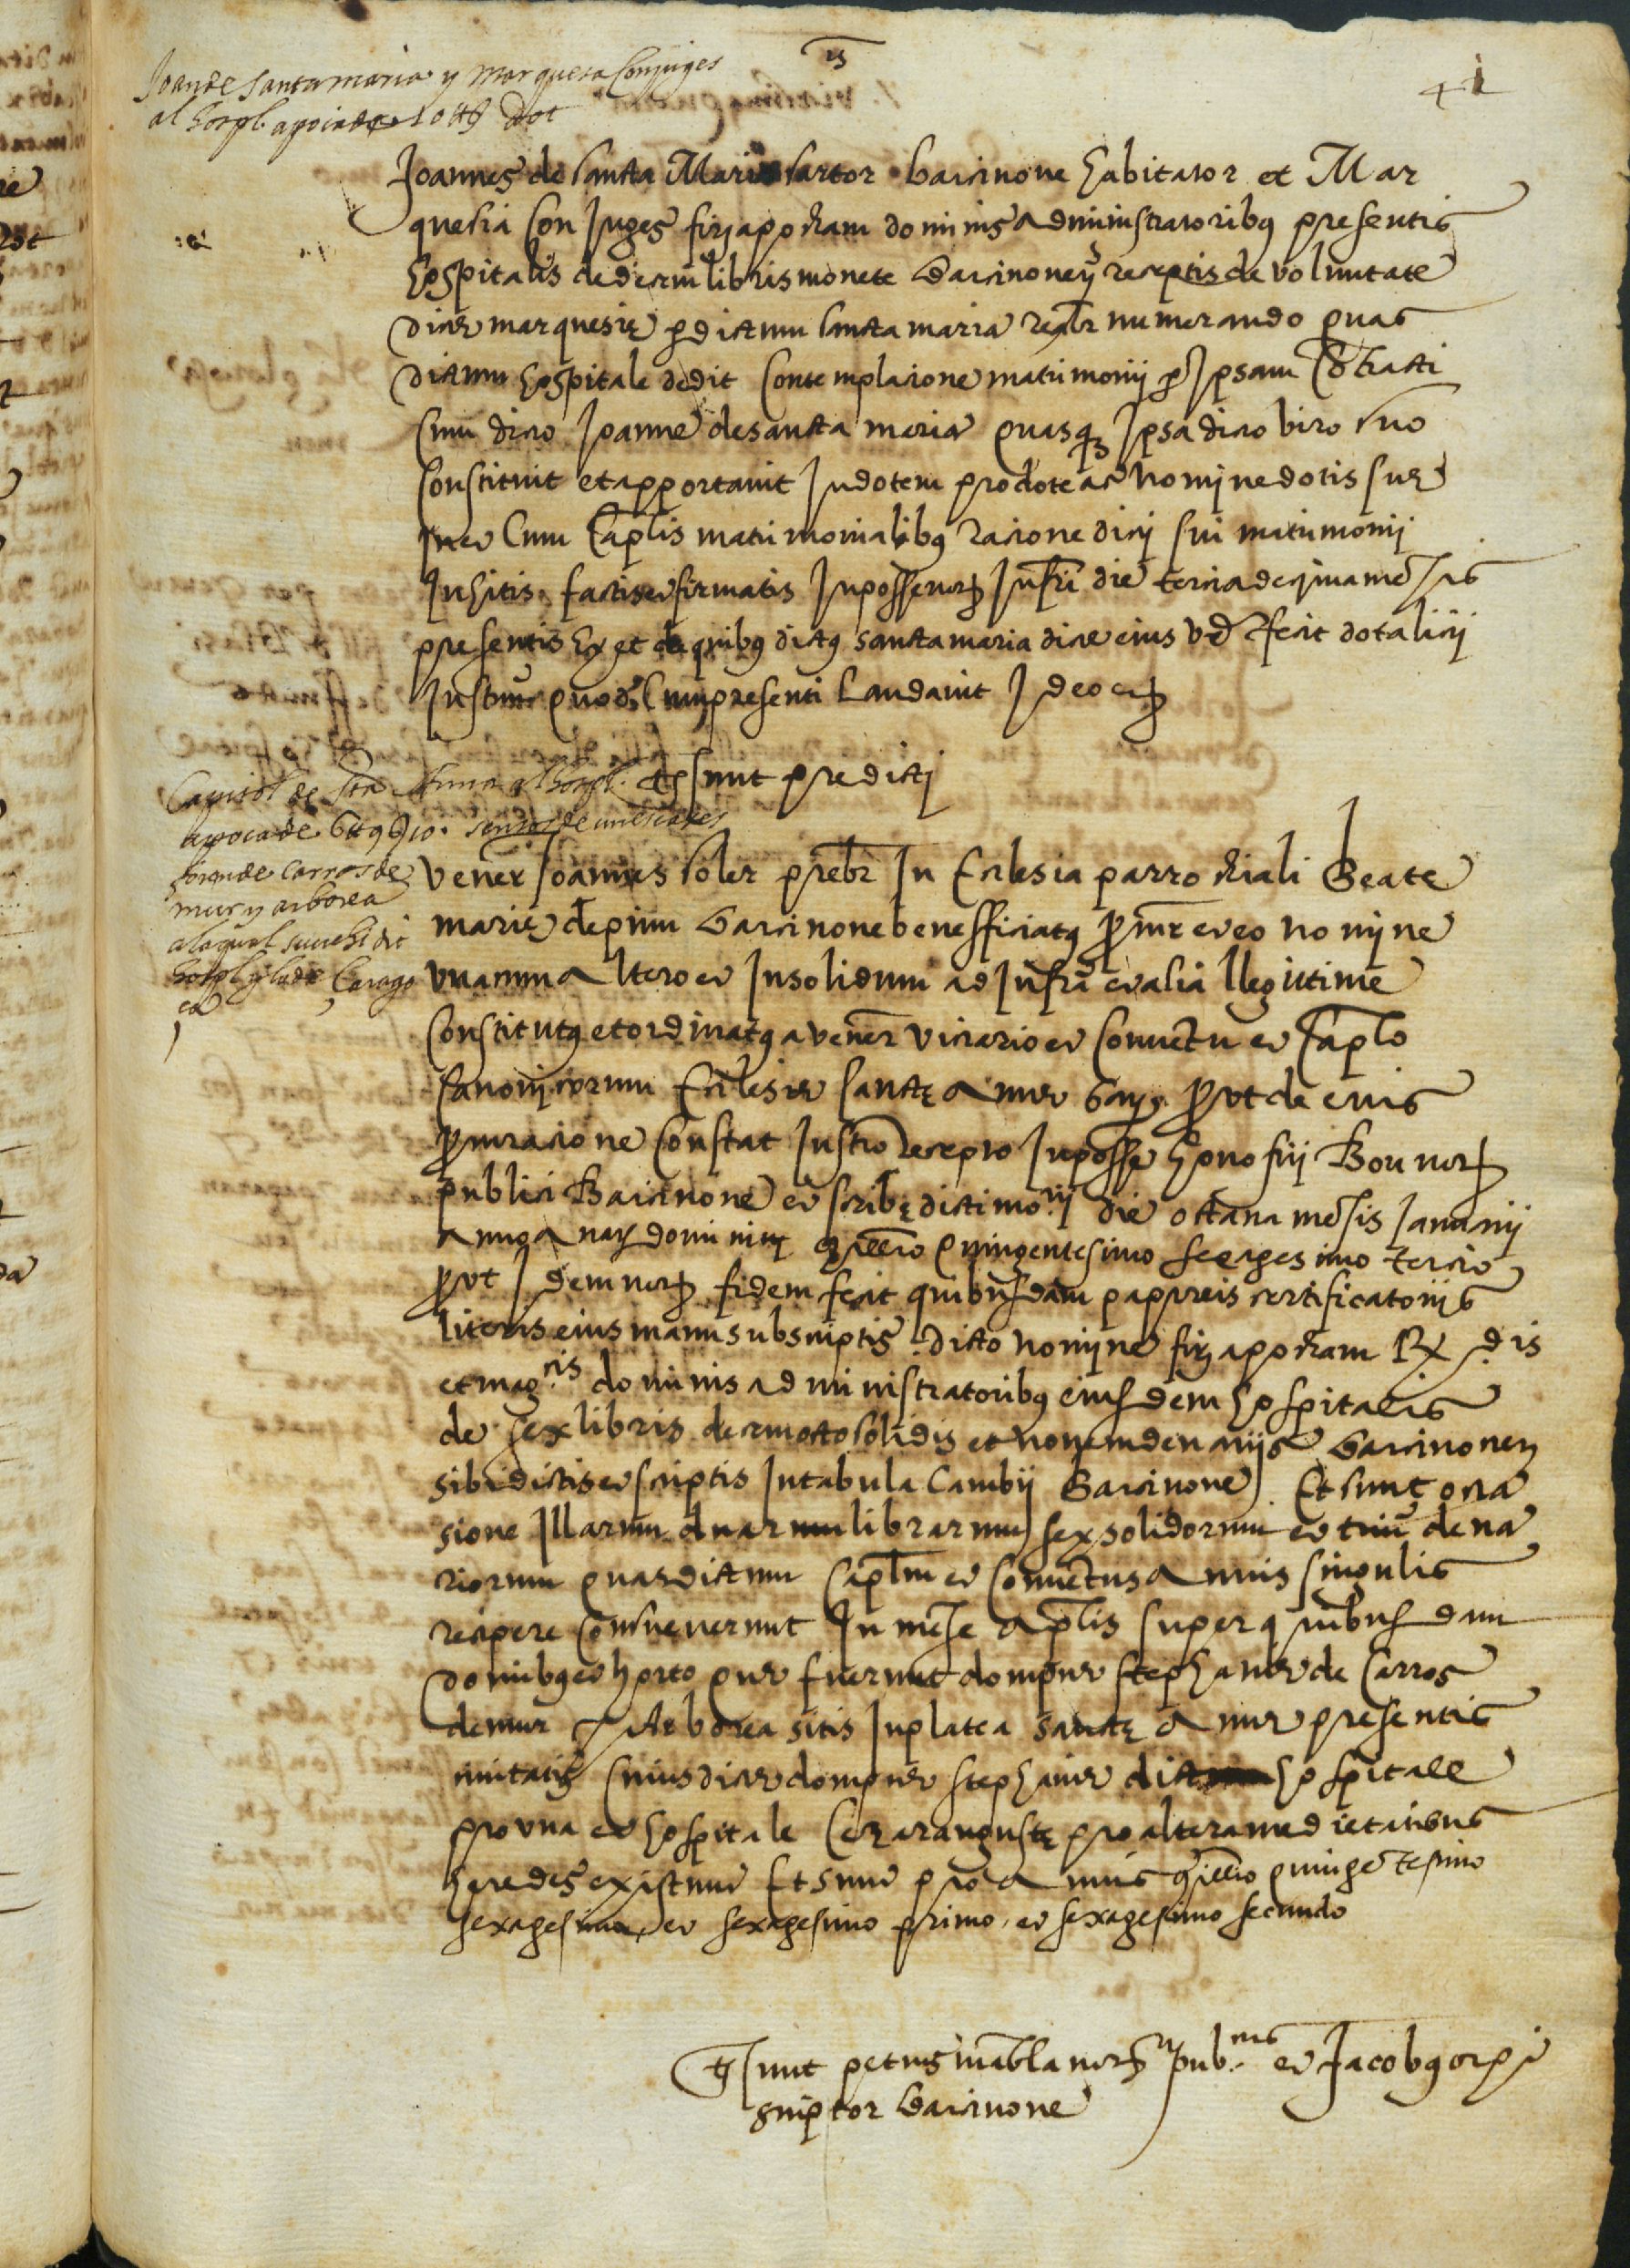 Joan de Santa maria y Marquesa Conjuges
al hospl. apoca de 10 ₶ dot
41
Joannes de sancta Maria sartor barcinone habitator et Mar
quesia Conjuges firj apocham dominis Administratoribꝰ presentis
hospitalis de decem libris monete barcinoneñ receptis de voluntate
dicte marquesię ꝑ dictum sancta maria realr̄ numerando quas
dictum hospitale dedit Contemplacione matrimonij ꝑ Ipsam Ↄtracti
Cum dicto Joanne de sancta maria quasqꝫ Ipsa dicto viro suo
Constituit et apportauit In dotem pro dote ac nomine dotis suę
Cum Caplis matrimonialibꝰ racione dicti sui matrimonij
Inhitis factis et firmatis In posse noꝝ Infrī die tercia decima mēsis
presentis Ex et de quibꝰ dictꝰ sancta maria dicte eius vxͬ fecit dotalicij
Instrum̄ quod Cum presenti Laudauit Ideo etꝝ
Ts̄ sunt predicti
Capitol de Sta Anna al hospl.
apoca de 6 ₶ 18 s 9. sensos de unes cases
foren de Carros de
mur y arborea
a la qual succehi dit
hospl y lo de Carago
ça
Vener̄ Joannes soler prebr̄ In Ecclesia parrochiali Beate
marię de pinu barcinone benefficiatꝰ ꝓcur̄ et eo nomine
vna cum Altero et Insolidum ad Infrā et alia llegittime
Constitutꝰ et ordinatꝰ a vener̄ vicario et Conuentu et Caplo
Canonicorum Ecclesie sanctę Anne barn̄ ꝓut de euis
ꝓcuracione Constat Instro recepto In posse honofrij Bou noꝝ
publici Barcinone et scribę dicti mo.rij die octaua mēsis Januarij
anno A nat̄ domini millēo quingentesimo sexagesimo tercio
ꝓut Idem noꝝ fidem fecit quibusdam pappireis certificatorijs
literis eius manu subscriptis dicto nomine firj apocham Rx.dis
et mag.cis dominis administratoribꝰ eiusdem hospitalis
de sex libris decem octo solidis et nonem denarijs barcinoneñ
sibi dictis et scriptis In tabula Cambij Barcinone. Et sunt occa
sione Illarum duarum librarum sex solidorum et trium dena
riorum quas dictum Caplm et Conuentus Annis singulis
recipere consueuerunt In mēse Aplis super quibusdam
domibꝰ et horto que fuerunt dompne stephanie de Carros
de mur & Arborea sitis In platea sanctę Anne presentis
ciuitatis Cuius dicte dompne stephanie dictum hospitale
pro vna et hospitale Cezarauguste pro altera medietatibus
heredes existunt Et sunt pro Annis millēo quingētesimo
sexagesimo et sexagesimo primo et sexagesimo secundo
Ts̄ sunt petrus mablã noꝝ pub.cus et Jacobꝰ orpi
scriptor barcinone